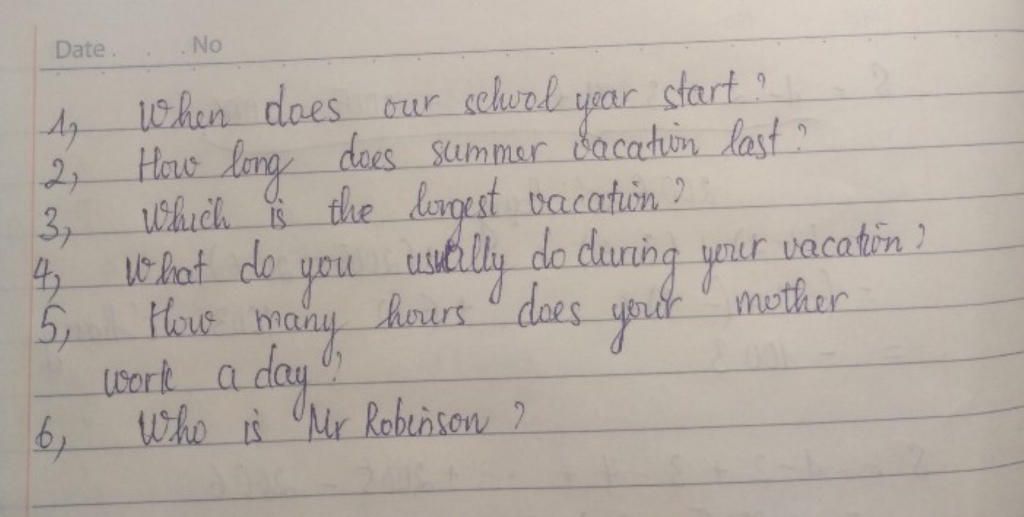 Date . . . No
1, When does our school year start?
2, How long does summer vacation last?
3, Which is the longest vacation?
4, What do you usually do during your vacation?
5, How many hours does your mother
work a day?
6, Who is Mr Robinson?